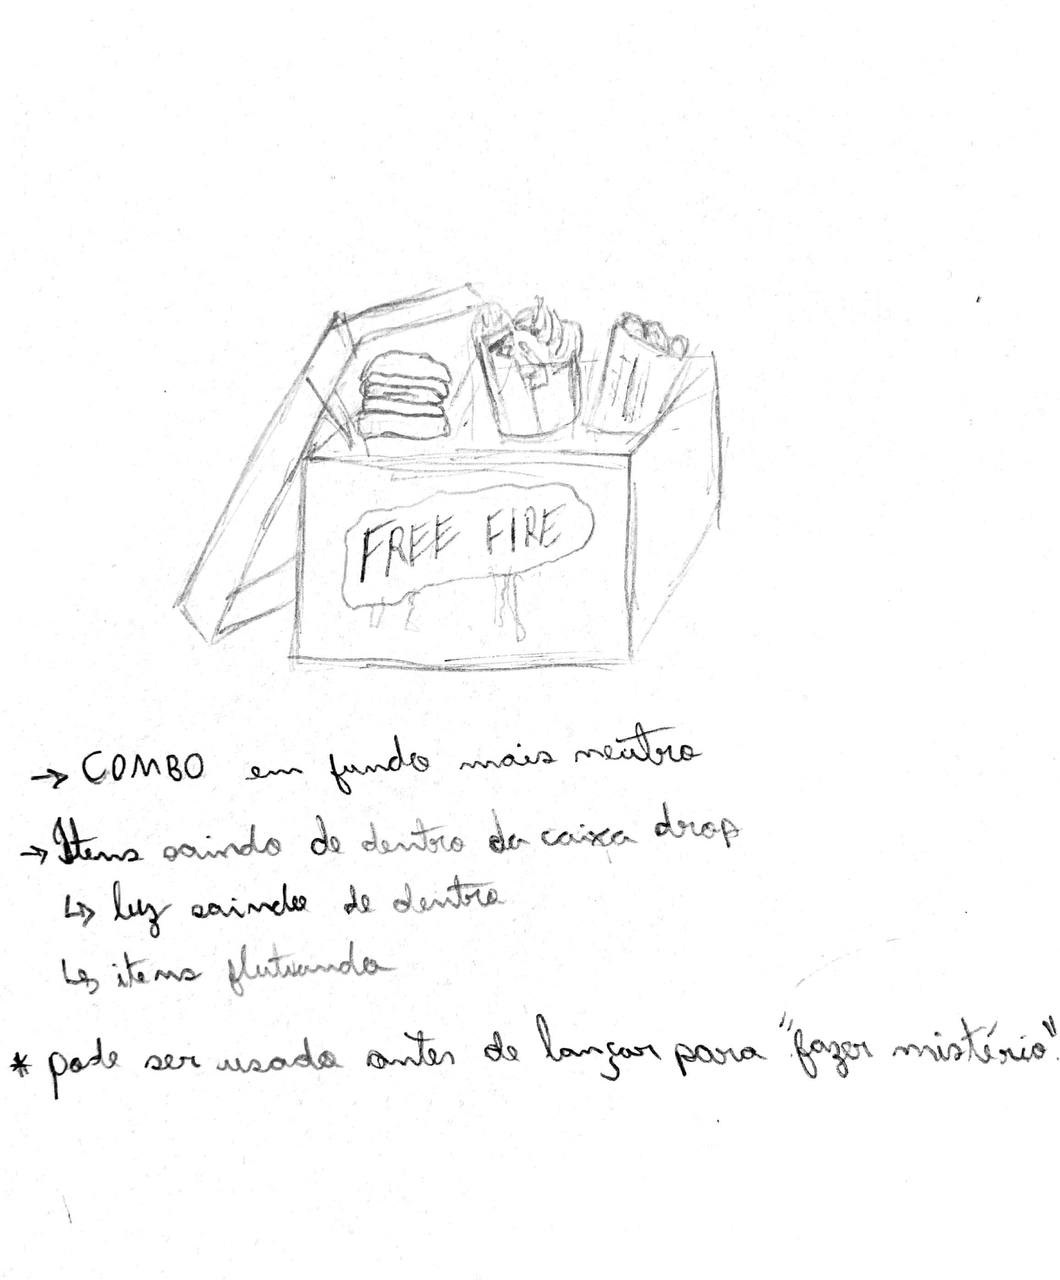 FREE FIRE
→ COMBO em fundo mais neutro
→ Itens saindo de dentro da caixa drop
↳ luz saindo de dentro
↳ itens flutuando
* pode ser usado antes de lançar para "fazer mistério".